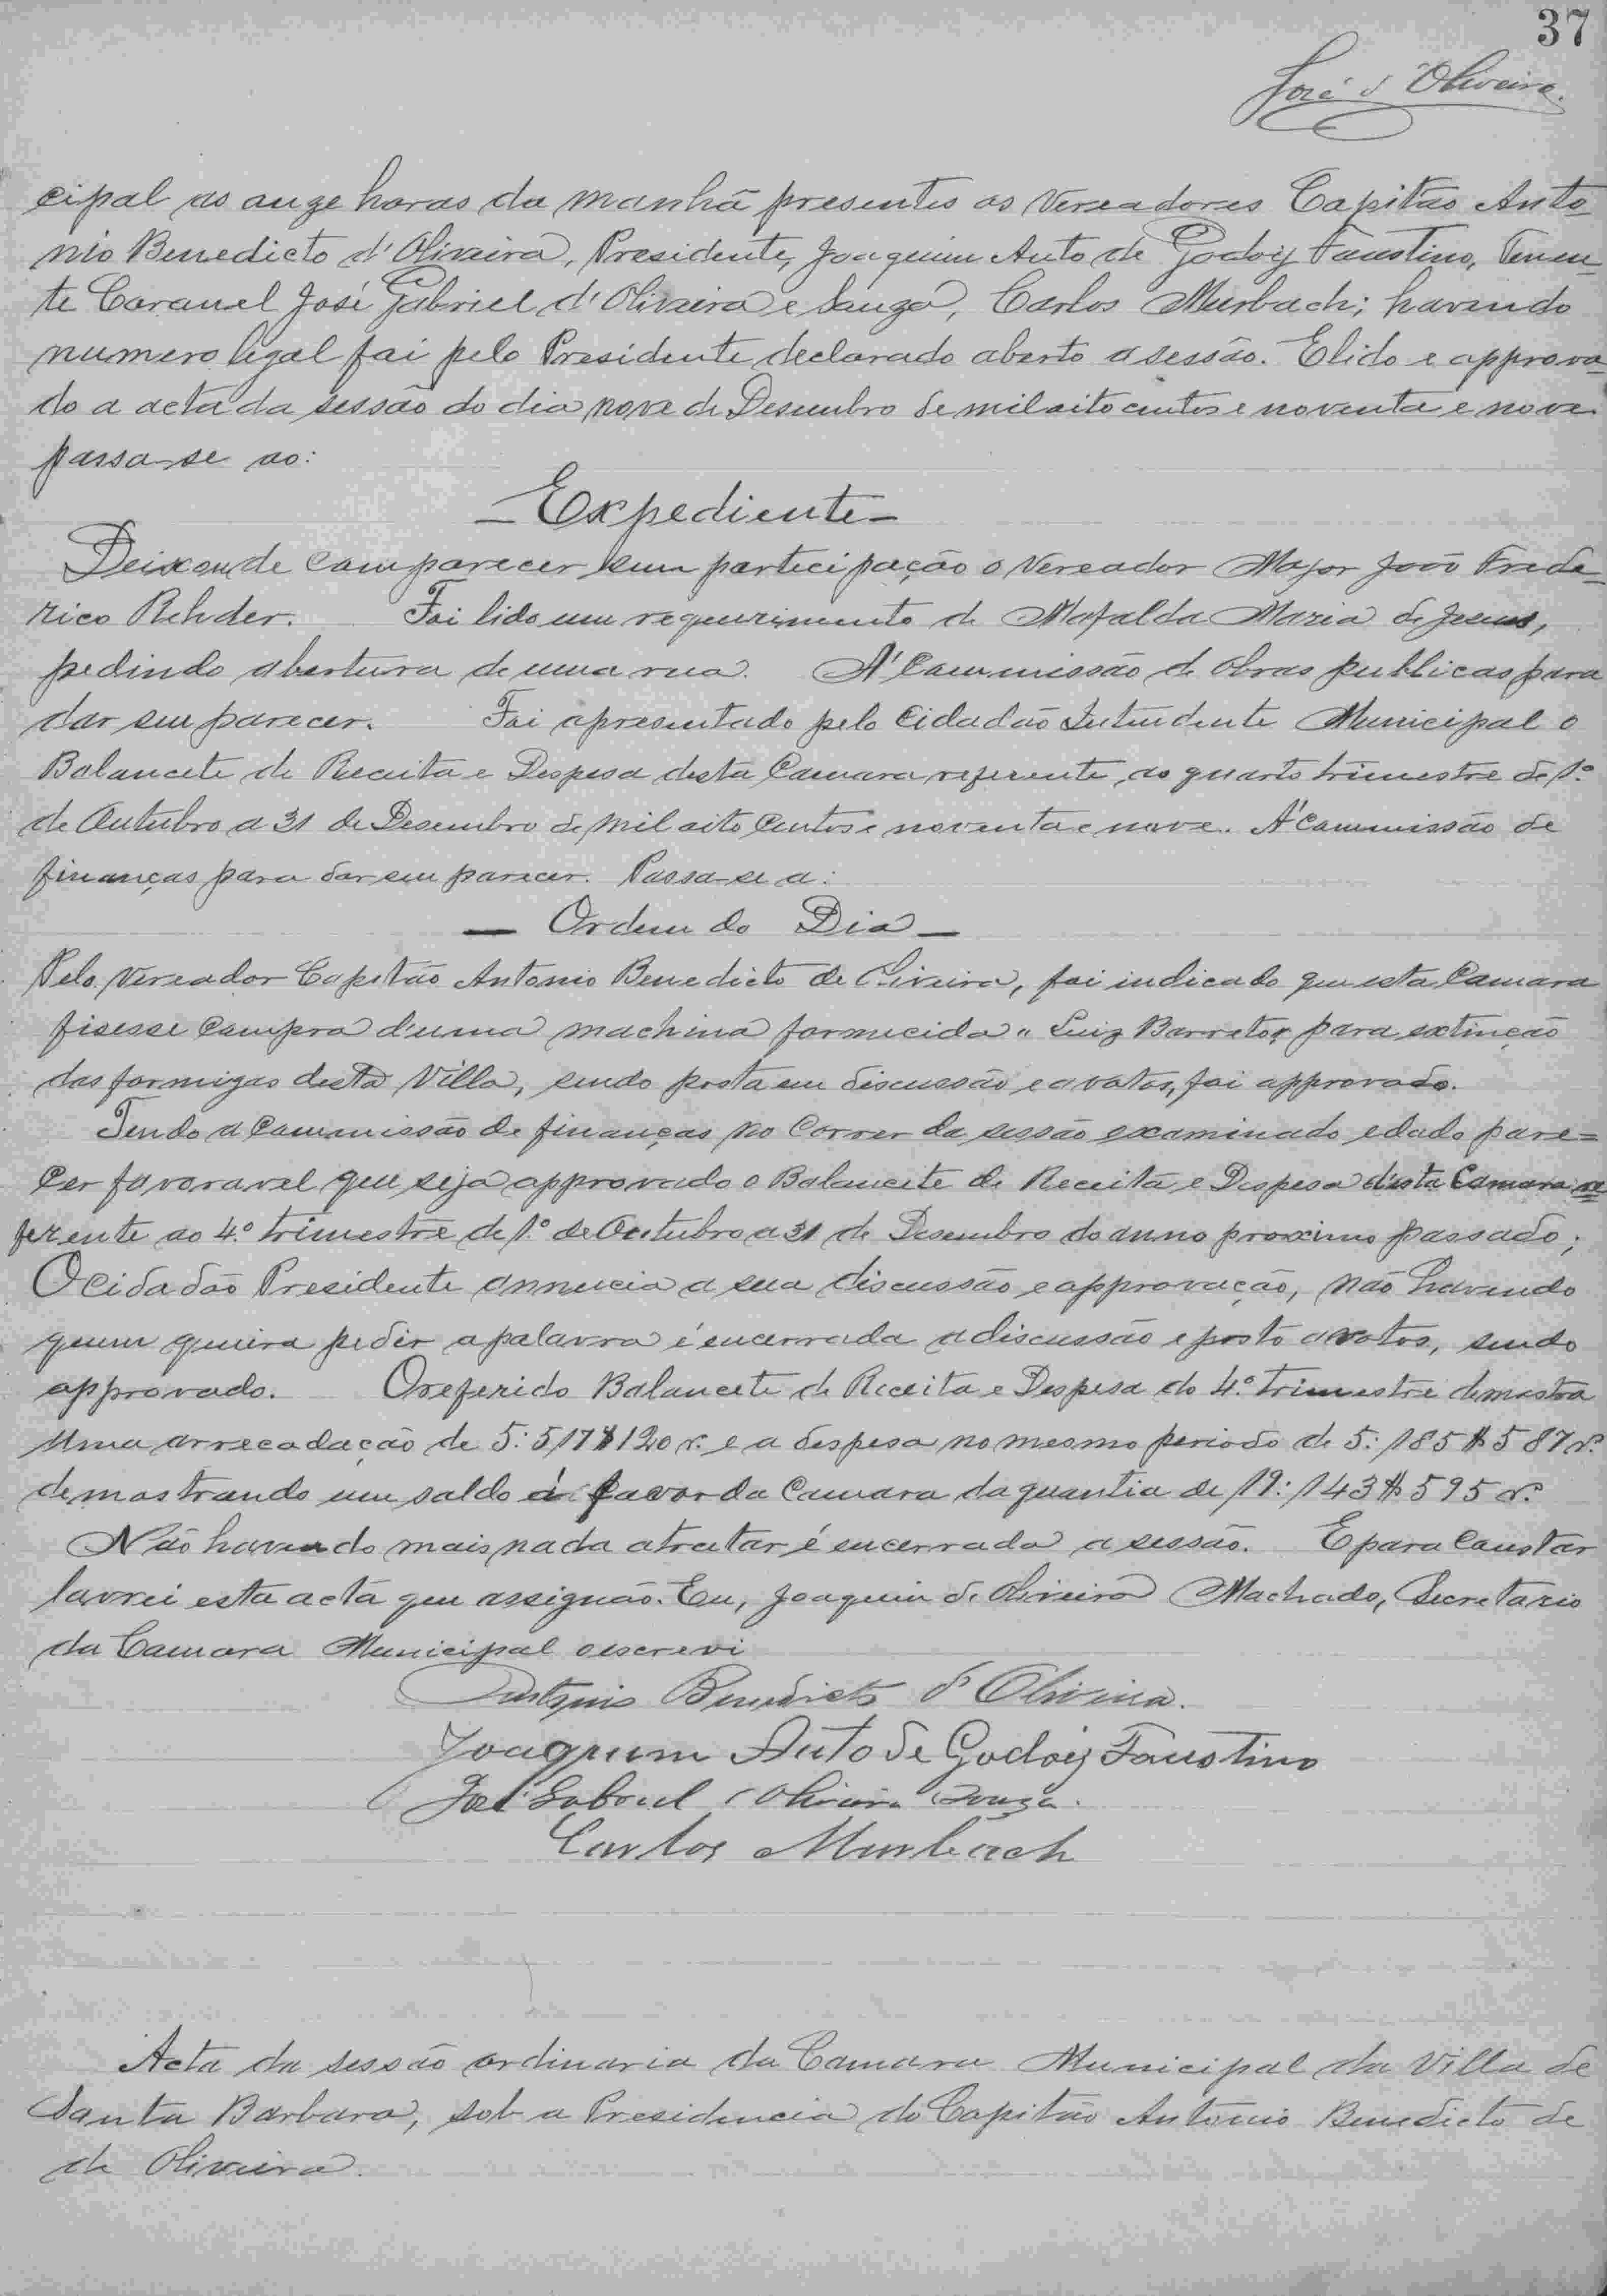 37
José d'Oliveira.
cipal as onze horas da manhã presentes os Vereadores Capitão Anto
nio Benedicto d'Oliveira, Presidente, Joaquim Auto de Godoy Faustino, Tenen-
te Coronel José Gabriel d'Oliveira e Souza, Carlos Murbach; havendo
numero legal foi pelo Presidente declarado aberto a sessão. E lido e approva-
do a acta da sessão do dia nove de Desembro de mil oito centos e noventa e nove
passa-se ao:
— Expediente —
Deixou de comparecer sem participação o Vereador Major João Frede-
rico Rehder. Foi lido um requerimento de Mafalda Maria de Jesus,
pedindo abertura de uma rua. A' Commissão de Obras publicas para
dar seu parecer. Foi apresentado pelo Cidadão Intendente Municipal o
Balancete de Receita e Despesa desta Camara referente ao quarto trimestre de 1º
de Outubro a 31 de Desembro de mil oito centos e noventa e nove. A' Commissão de
finanças para dar seu parecer. Passa-se a:
— Ordem do Dia —
Pelo Vereador Capitão Antonio Benedicto de Oliveira, foi indicado que esta Camara
fisesse compra d'uma machina formicida " Luiz Barreto, para extinção
das formigas desta Villa, sendo posta em discussão e a votos, foi approvado.
Tendo a Commissão de finanças no correr da sessão examinado e dado pare=
cer favoravel que seja approvado o Balancete de Receita e Despesa desta Camara re
ferente ao 4º trimestre de 1º de Outubro a 31 de Desembro do anno proximo passado;
O Cidadão Presidente annuncia a sua discussão e approvação, não havendo
quem queira pedir a palavra é encerrada a discussão e posto a votos, sendo
approvado. O referido Balancete de Receita e Despesa do 4º trimestre demostra
uma arrecadação de 5:517$120 r. e a despesa no mesmo periodo de 5:185$587 r.
demostrando um saldo á favor da Camara da quantia de 19:143$595 r.
Não havendo mais nada a tratar é encerrada a sessão. E para constar
lavrei esta acta que assignão. Eu, Joaquim de Oliveira Machado, Secretario
da Camara Municipal o escrevi
Antonio Benedicto d'Oliveira.
Joaquim Auto de Godoy Faustino
José Gabriel d'Oliveira Souza.
Carlos Murbach
Acta da sessão ordinaria da Camara Municipal da Villa de
Santa Barbara, sob a Presidencia do Capitão Antonio Benedicto de
de Oliveira.